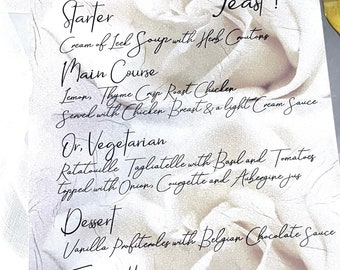 feast!
Starter
Cream of Leek Soup with Herb Croutons
Main Course
Lemon, Thyme Crisp Roast Chicken
Served with Chicken Breast & a light Cream Sauce
Or, Vegetarian
Ratatouille Tagliatelle with Basil and Tomatoes
topped with Onion, Courgette and Aubergine jus
Dessert
Vanilla Profiteroles with Belgian Chocolate Sauce